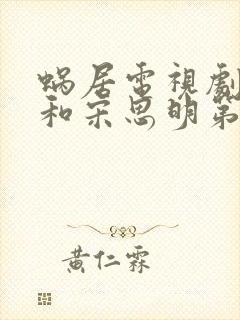 蝸居電視劇
和宋思明第
黃仁霖